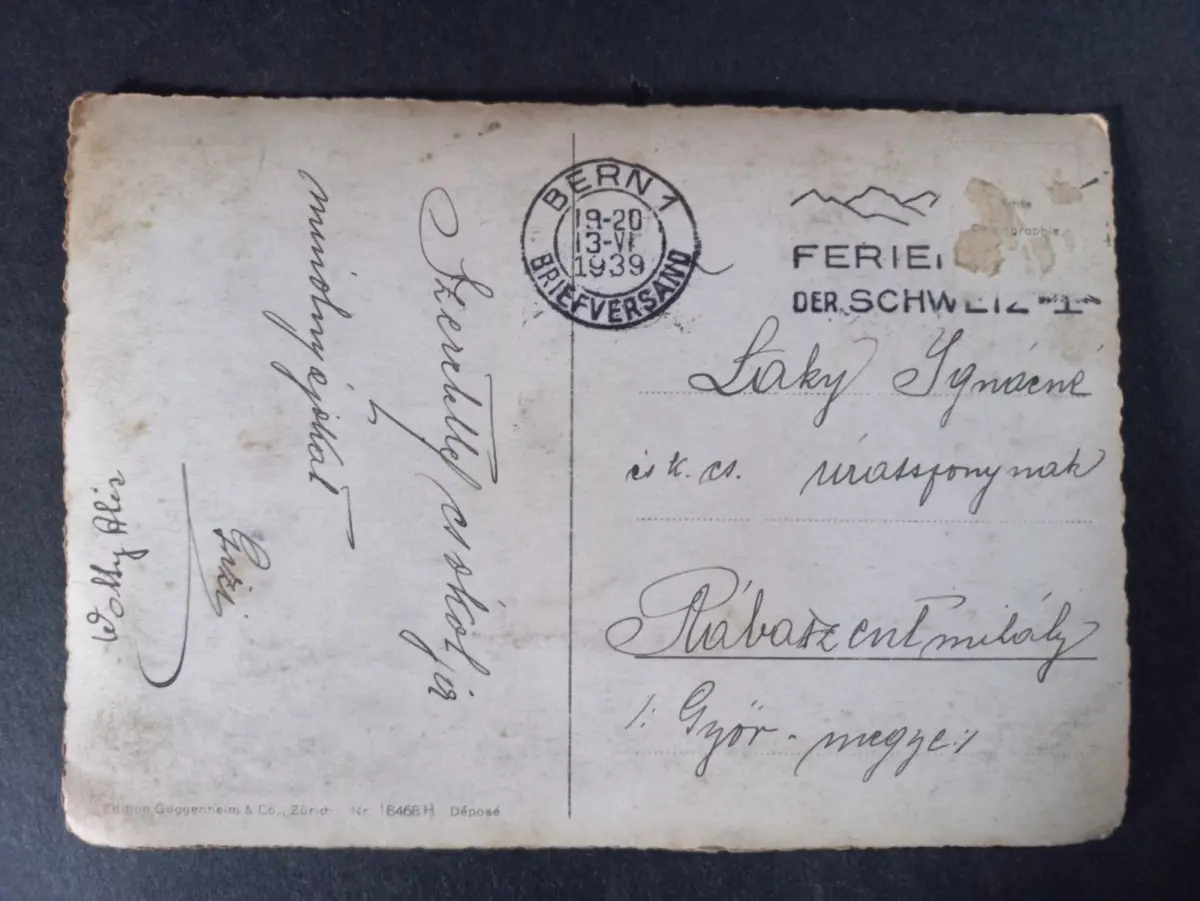 Szeretettel csókolja
mindnyájukat
Gizi
BERN 1
19-20
13-VI
1939
BRIEFVERSAND
FERIE
DER SCHWEIZ
Laky Ignácné
és k. cs. úrasszonynak
Rábaszentmihály
/: Győr - megye :/
Edition Guggenheim & Co., Zürich Nr. 18468 H Déposé